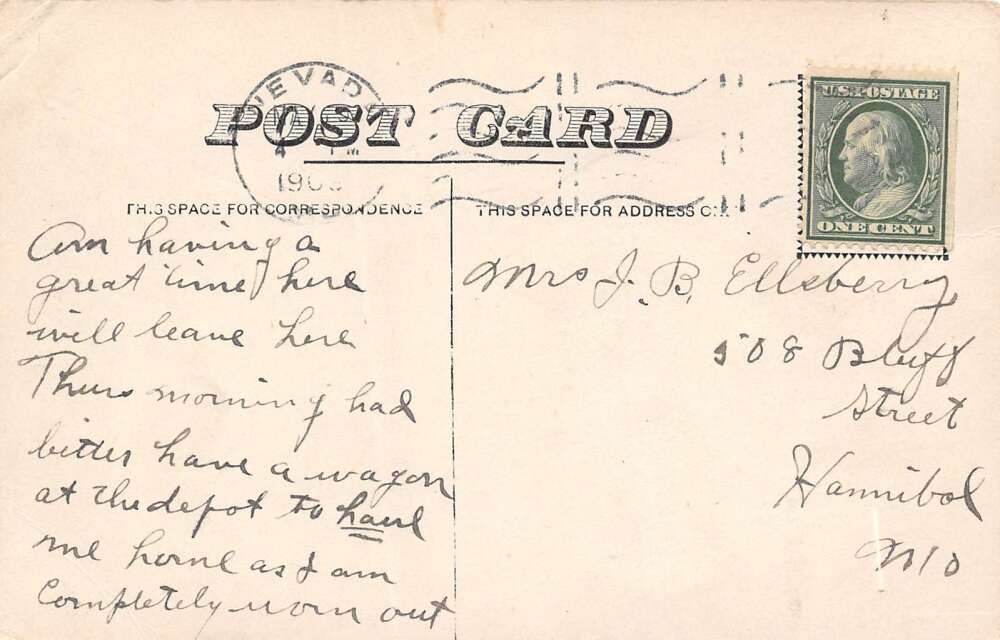 NEVAD
POST CARD
4 PM
190
U.S. POSTAGE
ONE CENT
THIS SPACE FOR CORRESPONDENCE
THIS SPACE FOR ADDRESS ONLY
Am having a
great time here
will leave here
Thurs morning had
better have a wagon
at the depot to haul
me home as I am
completely worn out
Mrs J. B. Ellsberry
508 Bluff
Street
Hannibal
Mo